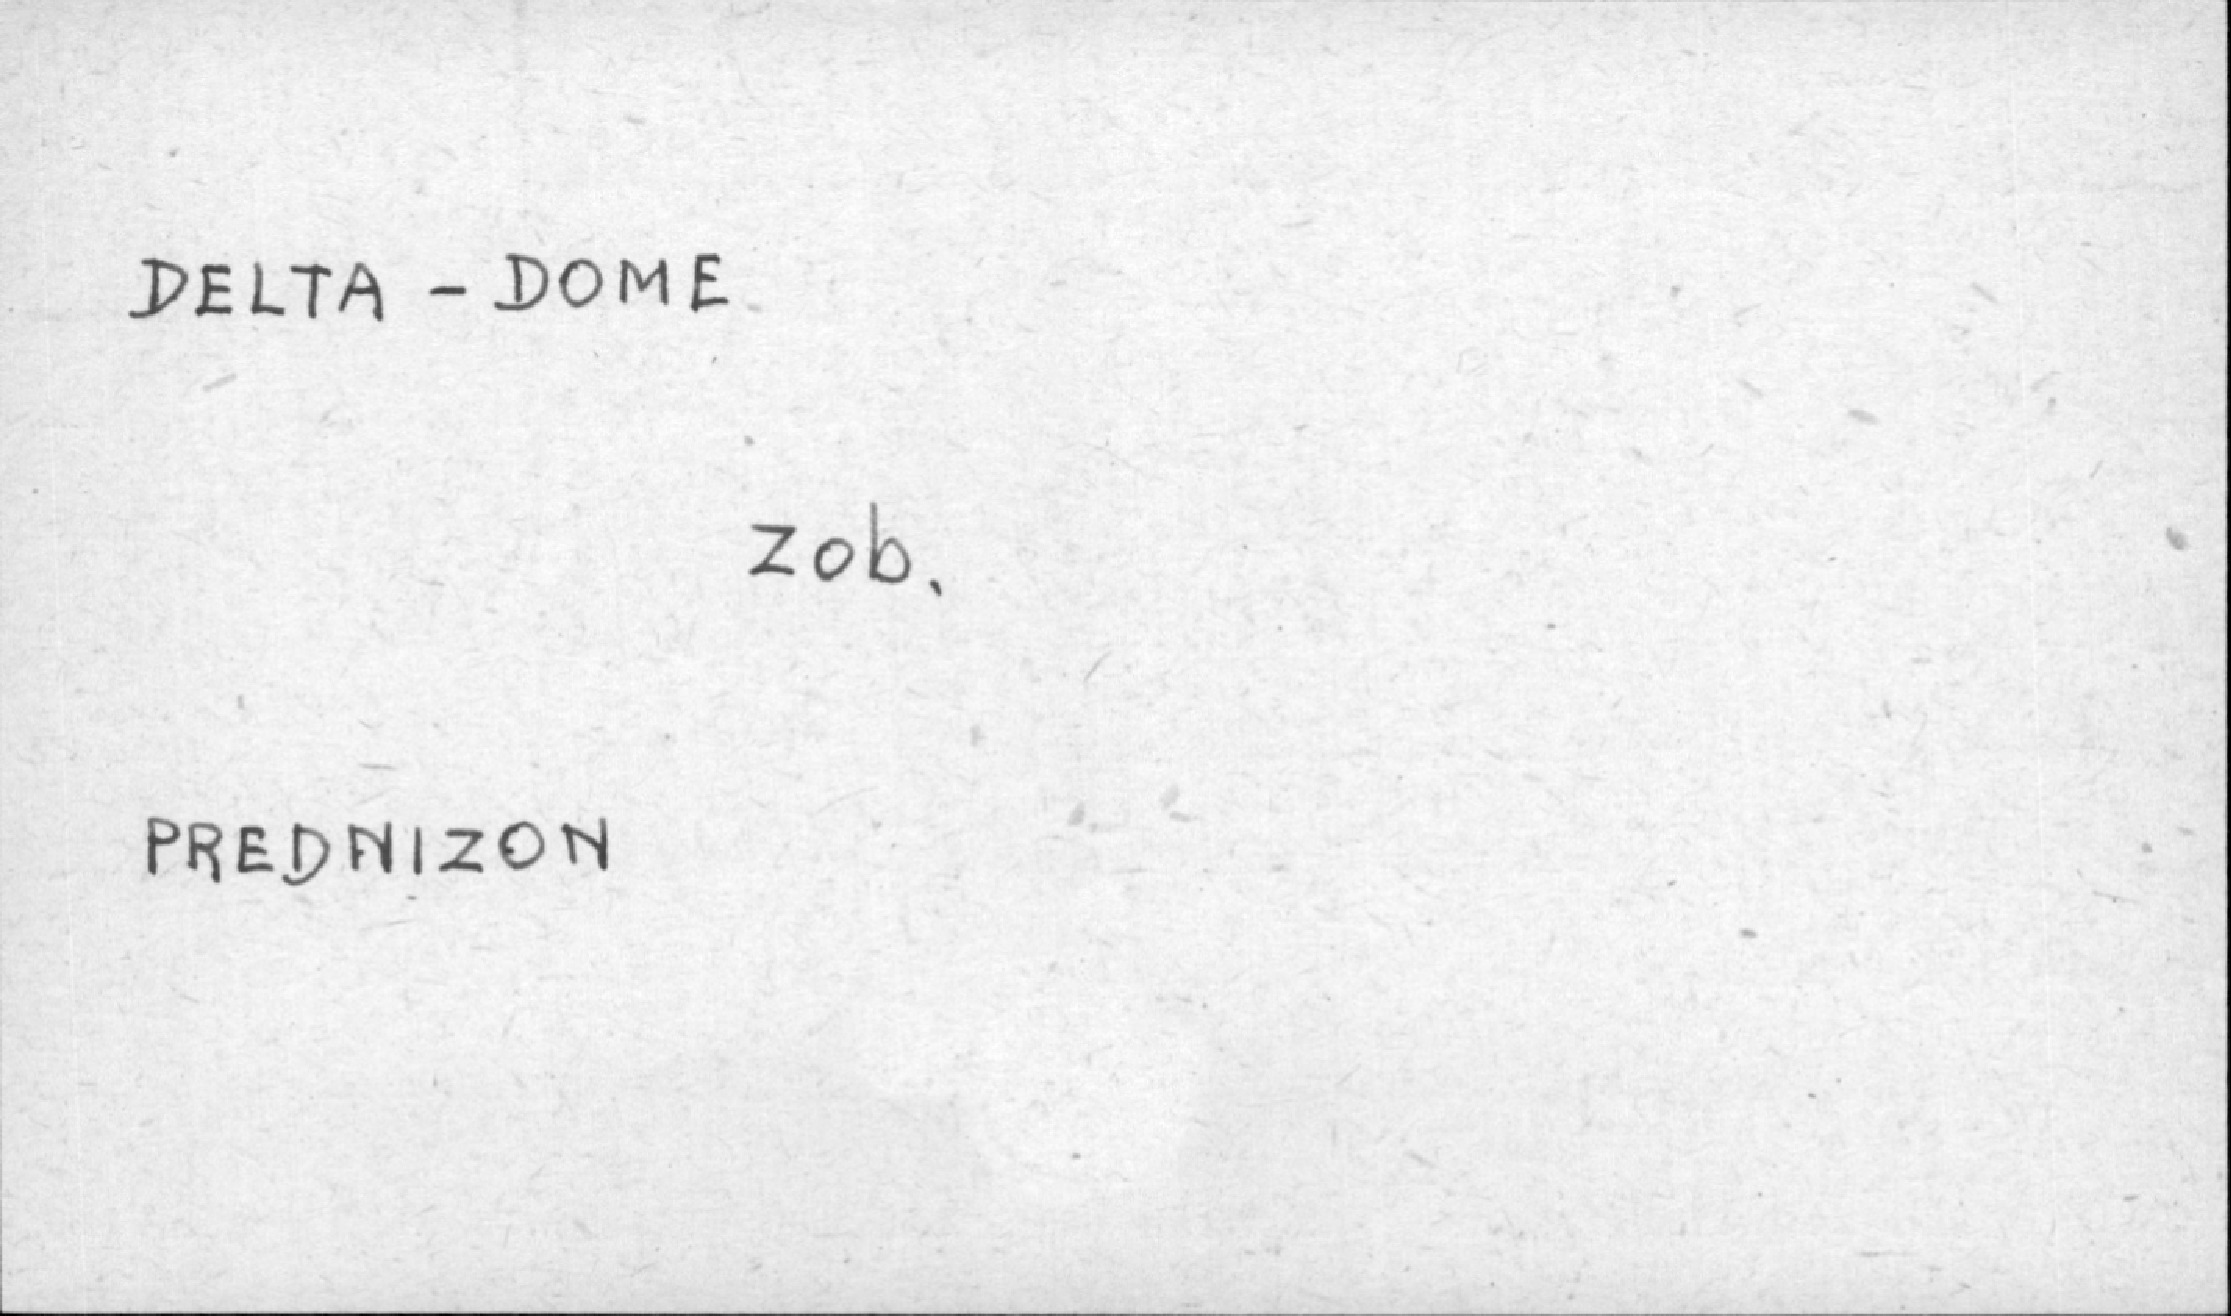 DELTA - DOME
zob.
PREDNIZON